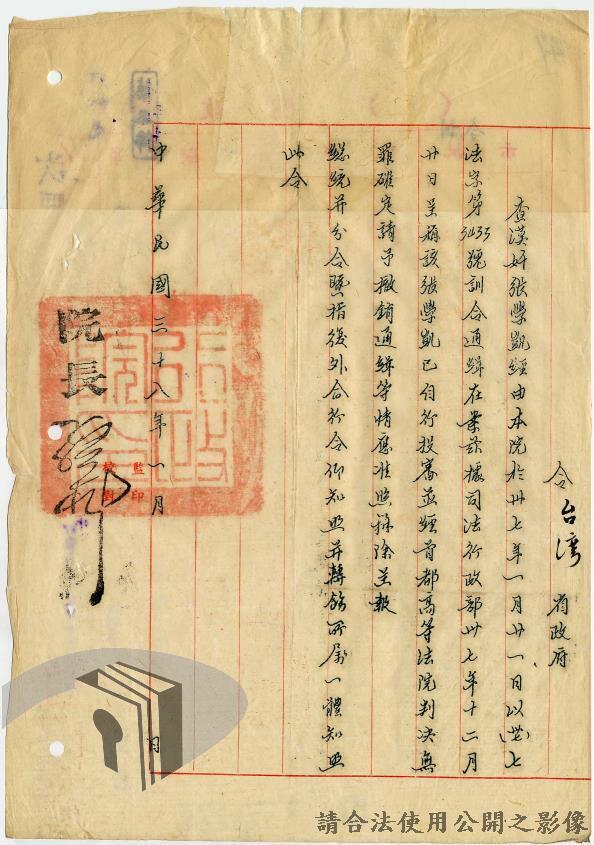 令 台灣 省政府
查漢奸張學凱經由本院於卅七年一月廿一日以(卅)七
法字第3435號訓令通緝在案茲據司法行政部卅七年十二月
廿日呈稱該張學凱已自行投審並經首都高等法院判決無
罪確定請予撤銷通緝等情應准照辦除呈報
總統并分令暨指復外合行令仰知照并轉飭所屬一體知照
此令
中華民國三十八年一月 日
監印
校對
院長 孫科
請合法使用公開之影像